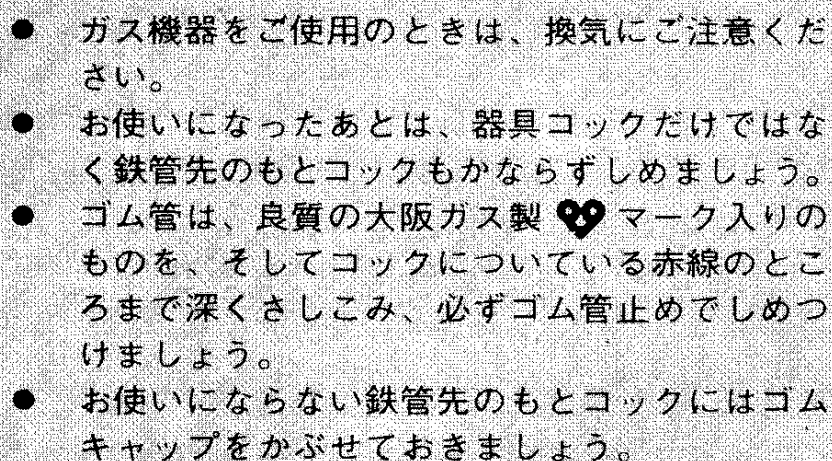 ● ガス機器をご使用のときは、換気にご注意くだ
さい。
● お使いになったあとは、器具コックだけではな
く鉄管先のもとコックもかならずしめましょう。
● ゴム管は、良質の大阪ガス製 マーク入りの
ものを、そしてコックについている赤線のとこ
ろまで深くさしこみ、必ずゴム管止めでしめつ
けましょう。
● お使いにならない鉄管先のもとコックにはゴム
キャップをかぶせておきましょう。